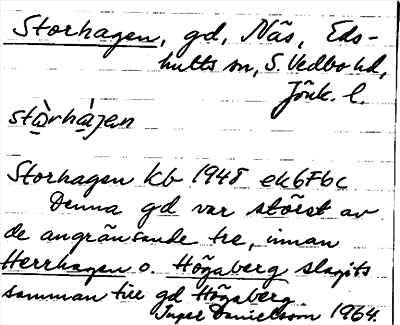 Storhagen, gd, Näs, Eds-
hults sn, S. Vedbo hd,
Jönk. l.
stàrhàjen
Storhagen kb 1948 ek6F6c
Denna gd var störst av
de angränsande tre, innan
Herrhagen o. Högaberg slagits
samman till gd Högaberg.
Inger Danielsson 1964.